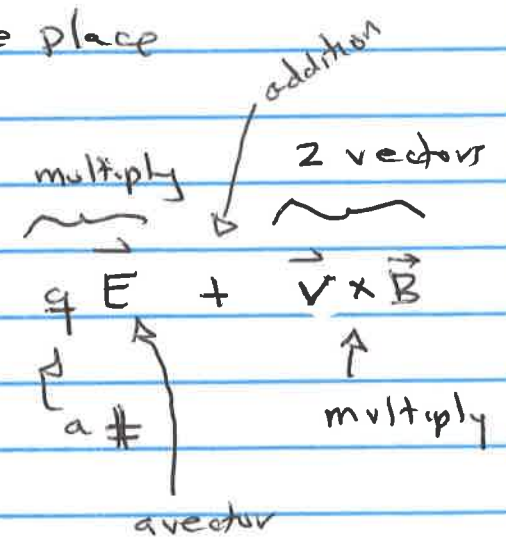 e place
addition
multiply
2 vectors
q E⃗ + v⃗ × B⃗
a #
multiply
a vector